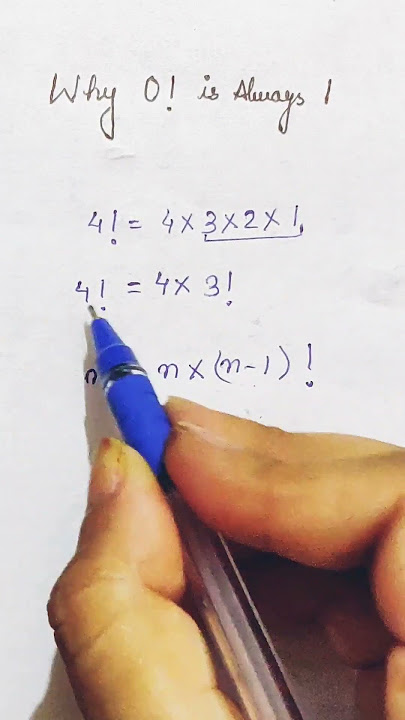 Why 0! is Always 1
4! = 4 × 3 × 2 × 1
4! = 4 × 3!
n × (n - 1)!